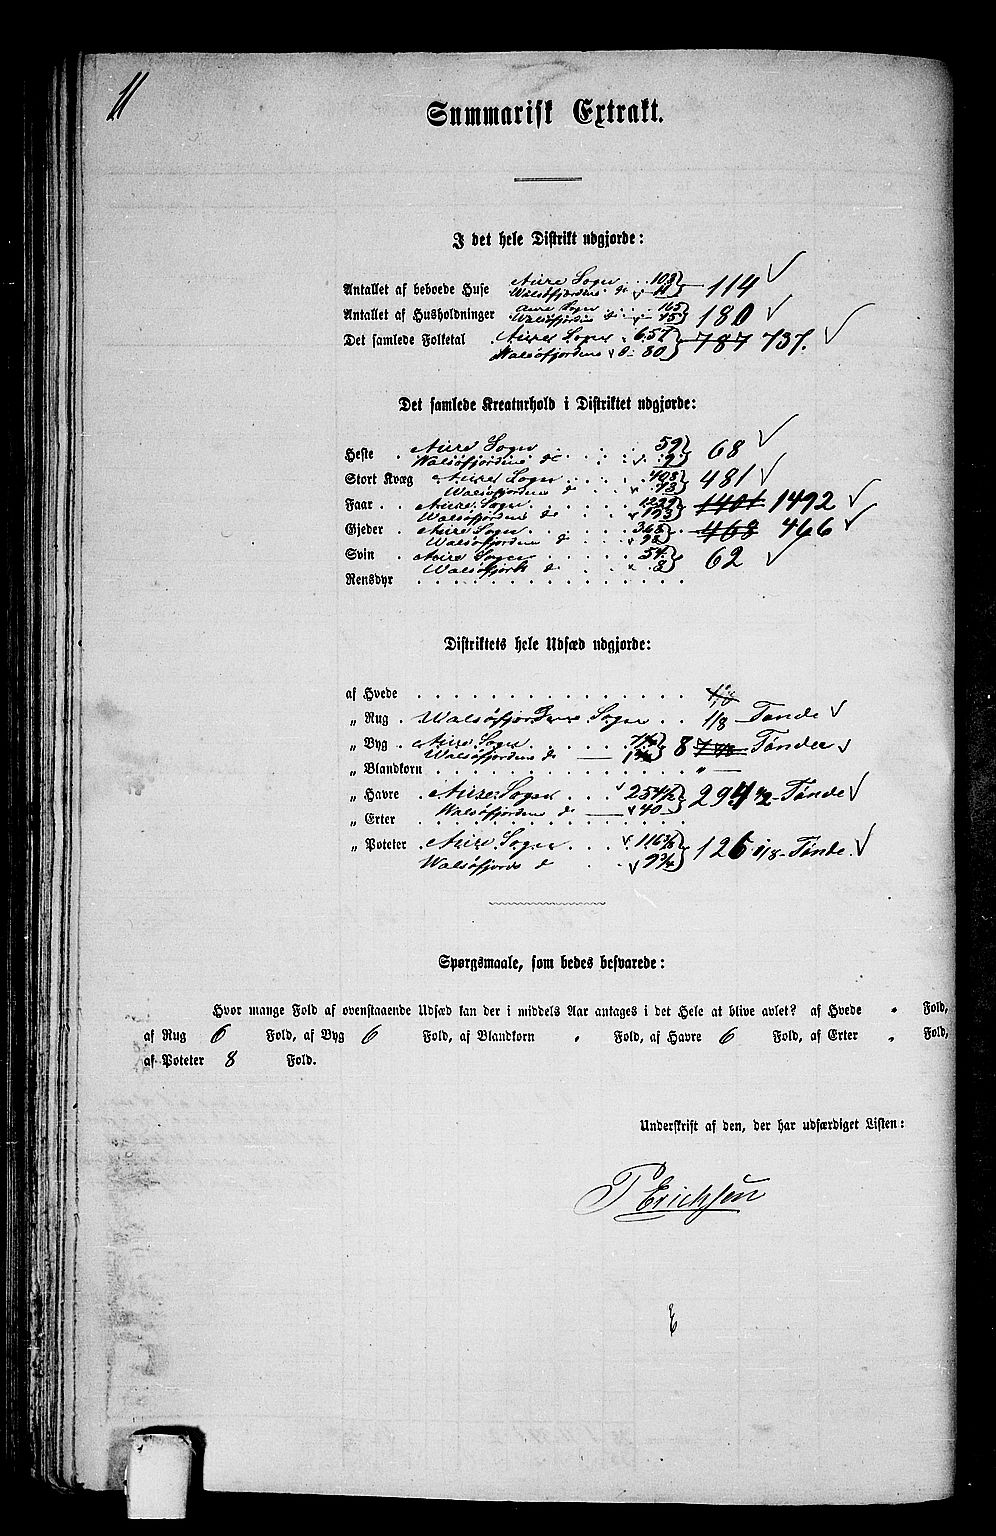 11
Summarisk Extrakt.
I det hele Distrikt udgjorde:
Antallet af beboede Huse Aure Sogn 103
Walsøfjordens do 11 } 114
Antallet af Husholdninger Aure Sogn 165
Walsøfjordens do 15 } 180
Det samlede Folketal Aure Sogn 657
Walsøfjordens do 80 } 787 737.
Det samlede Kreaturhold i Distriktet udgjorde:
Heste Aure Sogn 59
Walsøfjordens do 9 } 68
Stort Kvæg Aure Sogn 408
Walsøfjordens do 73 } 481
Faar Aure Sogn 1299
Walsøfjordens do 193 } 1401 1492
Gjeder Aure Sogn 368
Walsøfjordens do 98 } 468 466
Svin Aure Sogn 54
Walsøfjords do 8 } 62
Rensdyr
Distriktets hele Udsæd udgjorde:
af Hvede 1/8
„ Rug Walsøfjordens Sogn 1/8 Tønde
„ Byg Aure Sogn
Walsøfjordens do } 8 Tønder
„ Blandkorn „
„ Havre Aure Sogn 254 1/2
Walsøfjordens do 40 } 294 1/2 Tønde
„ Erter
„ Poteter Aure Sogn 116
Walsøfjords do 9 } 126 1/8 Tønde.
Spørgsmaale, som bedes besvarede:
Hvor mange Fold af ovenstaaende Udsæd kan der i middels Aar antages i det Hele at blive avlet? af Hvede „ Fold,
af Rug 6 Fold, af Byg 6 Fold, af Blandkorn „ Fold, af Havre 6 Fold, af Erter „ Fold,
af Poteter 8 Fold.
Underskrift af den, der har udfærdiget Listen:
P Erichsen